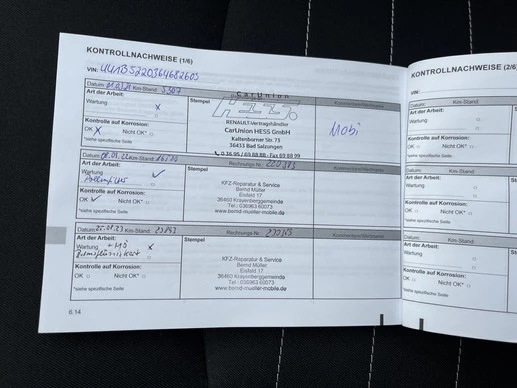 KONTROLLNACHWEISE (1/6)
VIN:
Datum: Km-Stand: 5307
Art der Arbeit:
Wartung x
Stempel
CarUnion
RENAULT-Vertragshändler
CarUnion HESS GmbH
Kaltenborner Str. 73
36433 Bad Salzungen
0 36 95 / 69 88 88 · Fax 69 88 99
Mobi
Kontrolle auf Korrosion:
OK x Nicht OK*
*siehe spezifische Seite
Datum: Km-Stand:
Rechnungs-Nr.:
Art der Arbeit:
Wartung ✓
Stempel
KFZ-Reparatur & Service
Bernd Müller
Eisfeld 17
36460 Krayenberggemeinde
Tel.: 036963 60073
www.bernd-mueller-mobile.de
Kontrolle auf Korrosion:
OK ✓ Nicht OK*
*siehe spezifische Seite
Datum: 25.07.23 Km-Stand:
Rechnungs-Nr.:
Art der Arbeit:
Wartung + MÖ x
Stempel
KFZ-Reparatur & Service
Bernd Müller
Eisfeld 17
36460 Krayenberggemeinde
Tel.: 036963 60073
www.bernd-mueller-mobile.de
Kontrolle auf Korrosion:
OK Nicht OK*
*siehe spezifische Seite
6.14
KONTROLLNACHWEISE (2/6)
VIN:
Datum: Km-Stand:
Art der Arbeit:
Wartung
Kontrolle auf Korrosion:
OK Nicht OK*
*siehe spezifische Seite
Datum: Km-Stand:
Art der Arbeit:
Wartung
Kontrolle auf Korrosion:
OK Nicht OK*
*siehe spezifische Seite
Datum: Km-Stand:
Art der Arbeit:
Wartung
Kontrolle auf Korrosion:
OK Nicht OK*
*siehe spezifische Seite